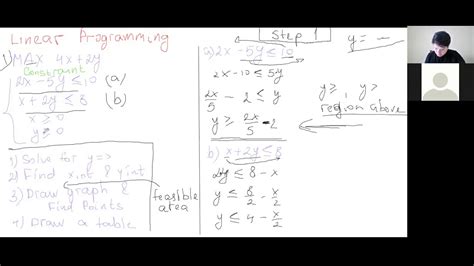 Linear Programming
1) MAX 4x + 2y
Constraint
2x - 5y ≤ 10 (a)
x + 2y ≤ 8 (b)
x ≥ 0
y ≥ 0
1) Solve for y =>
2) Find x int & y int
3) Draw graph &
Find Points
4) Draw a table
feasible
area
Step 1
a) 2x - 5y ≤ 10
2x - 10 ≤ 5y
2x/5 - 2 ≤ y
y ≥ 2x/5 - 2
b) x + 2y ≤ 8
2y ≤ 8 - x
y ≤ 8/2 - x/2
y ≤ 4 - x/2
y = —
y ≥ , y >
region above